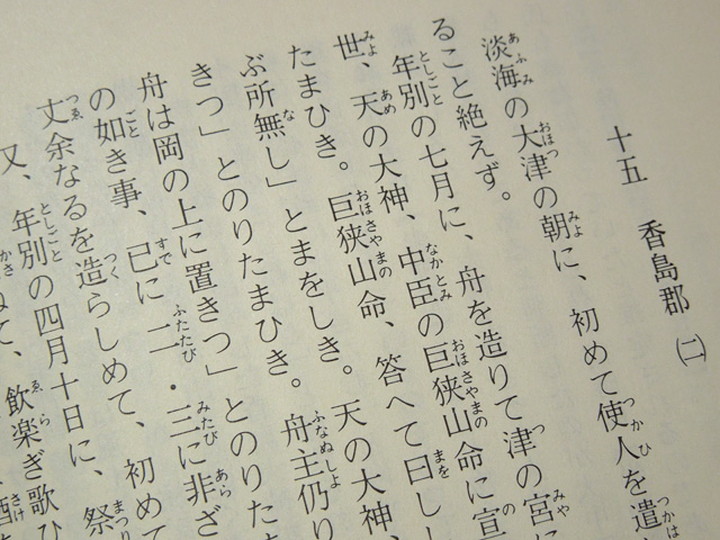 十五 香島郡 ㈡
淡海の大津の朝に、初めて使人を遣
ること絶えず。
年別の七月に、舟を造りて津の宮に
世、天の大神、中臣の巨狭山命に宣
たまひき。巨狭山命、答へて曰しし
ぶ所無し」とまをしき。天の大神、
きつ」とのりたまひき。舟主仍り
舟は岡の上に置きつ」とのりたま
の如き事、已に二・三に非ざ
丈余なるを造らしめて、初めて
又、年別の四月十日に、祭
ねて、飲楽ぎ歌ひ